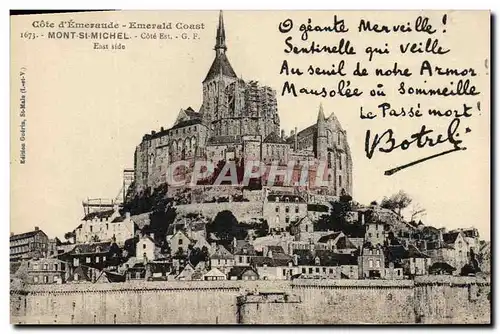 Côte d'Emeraude - Emerald Coast
1673. - MONT-St-MICHEL. - Côté Est. - G. F.
East side
O géante Merveille !
Sentinelle qui veille
Au seuil de notre Armor
Mausolée où Sommeille
Le Passé mort !
Botrel
Edition Guérin, St-Malo (I.-et-V.)
CPARAMA